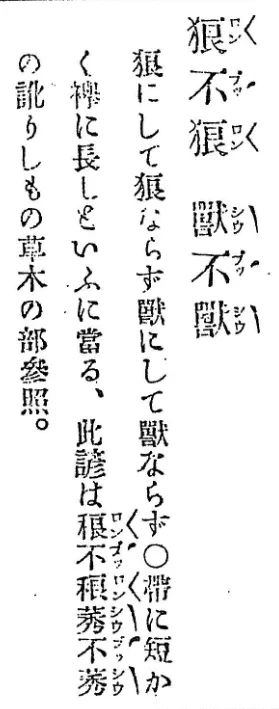 狼不狼 獸不獸
ロン ブッ ロン シウ ブッ シウ
狼にして狼ならず獸にして獸ならず〇帶に短か
く襷に長しといふに當る、此諺は稂不稂莠不莠
ロン ブッ ロン シウ ブッ シウ
の訛りしもの草木の部參照。